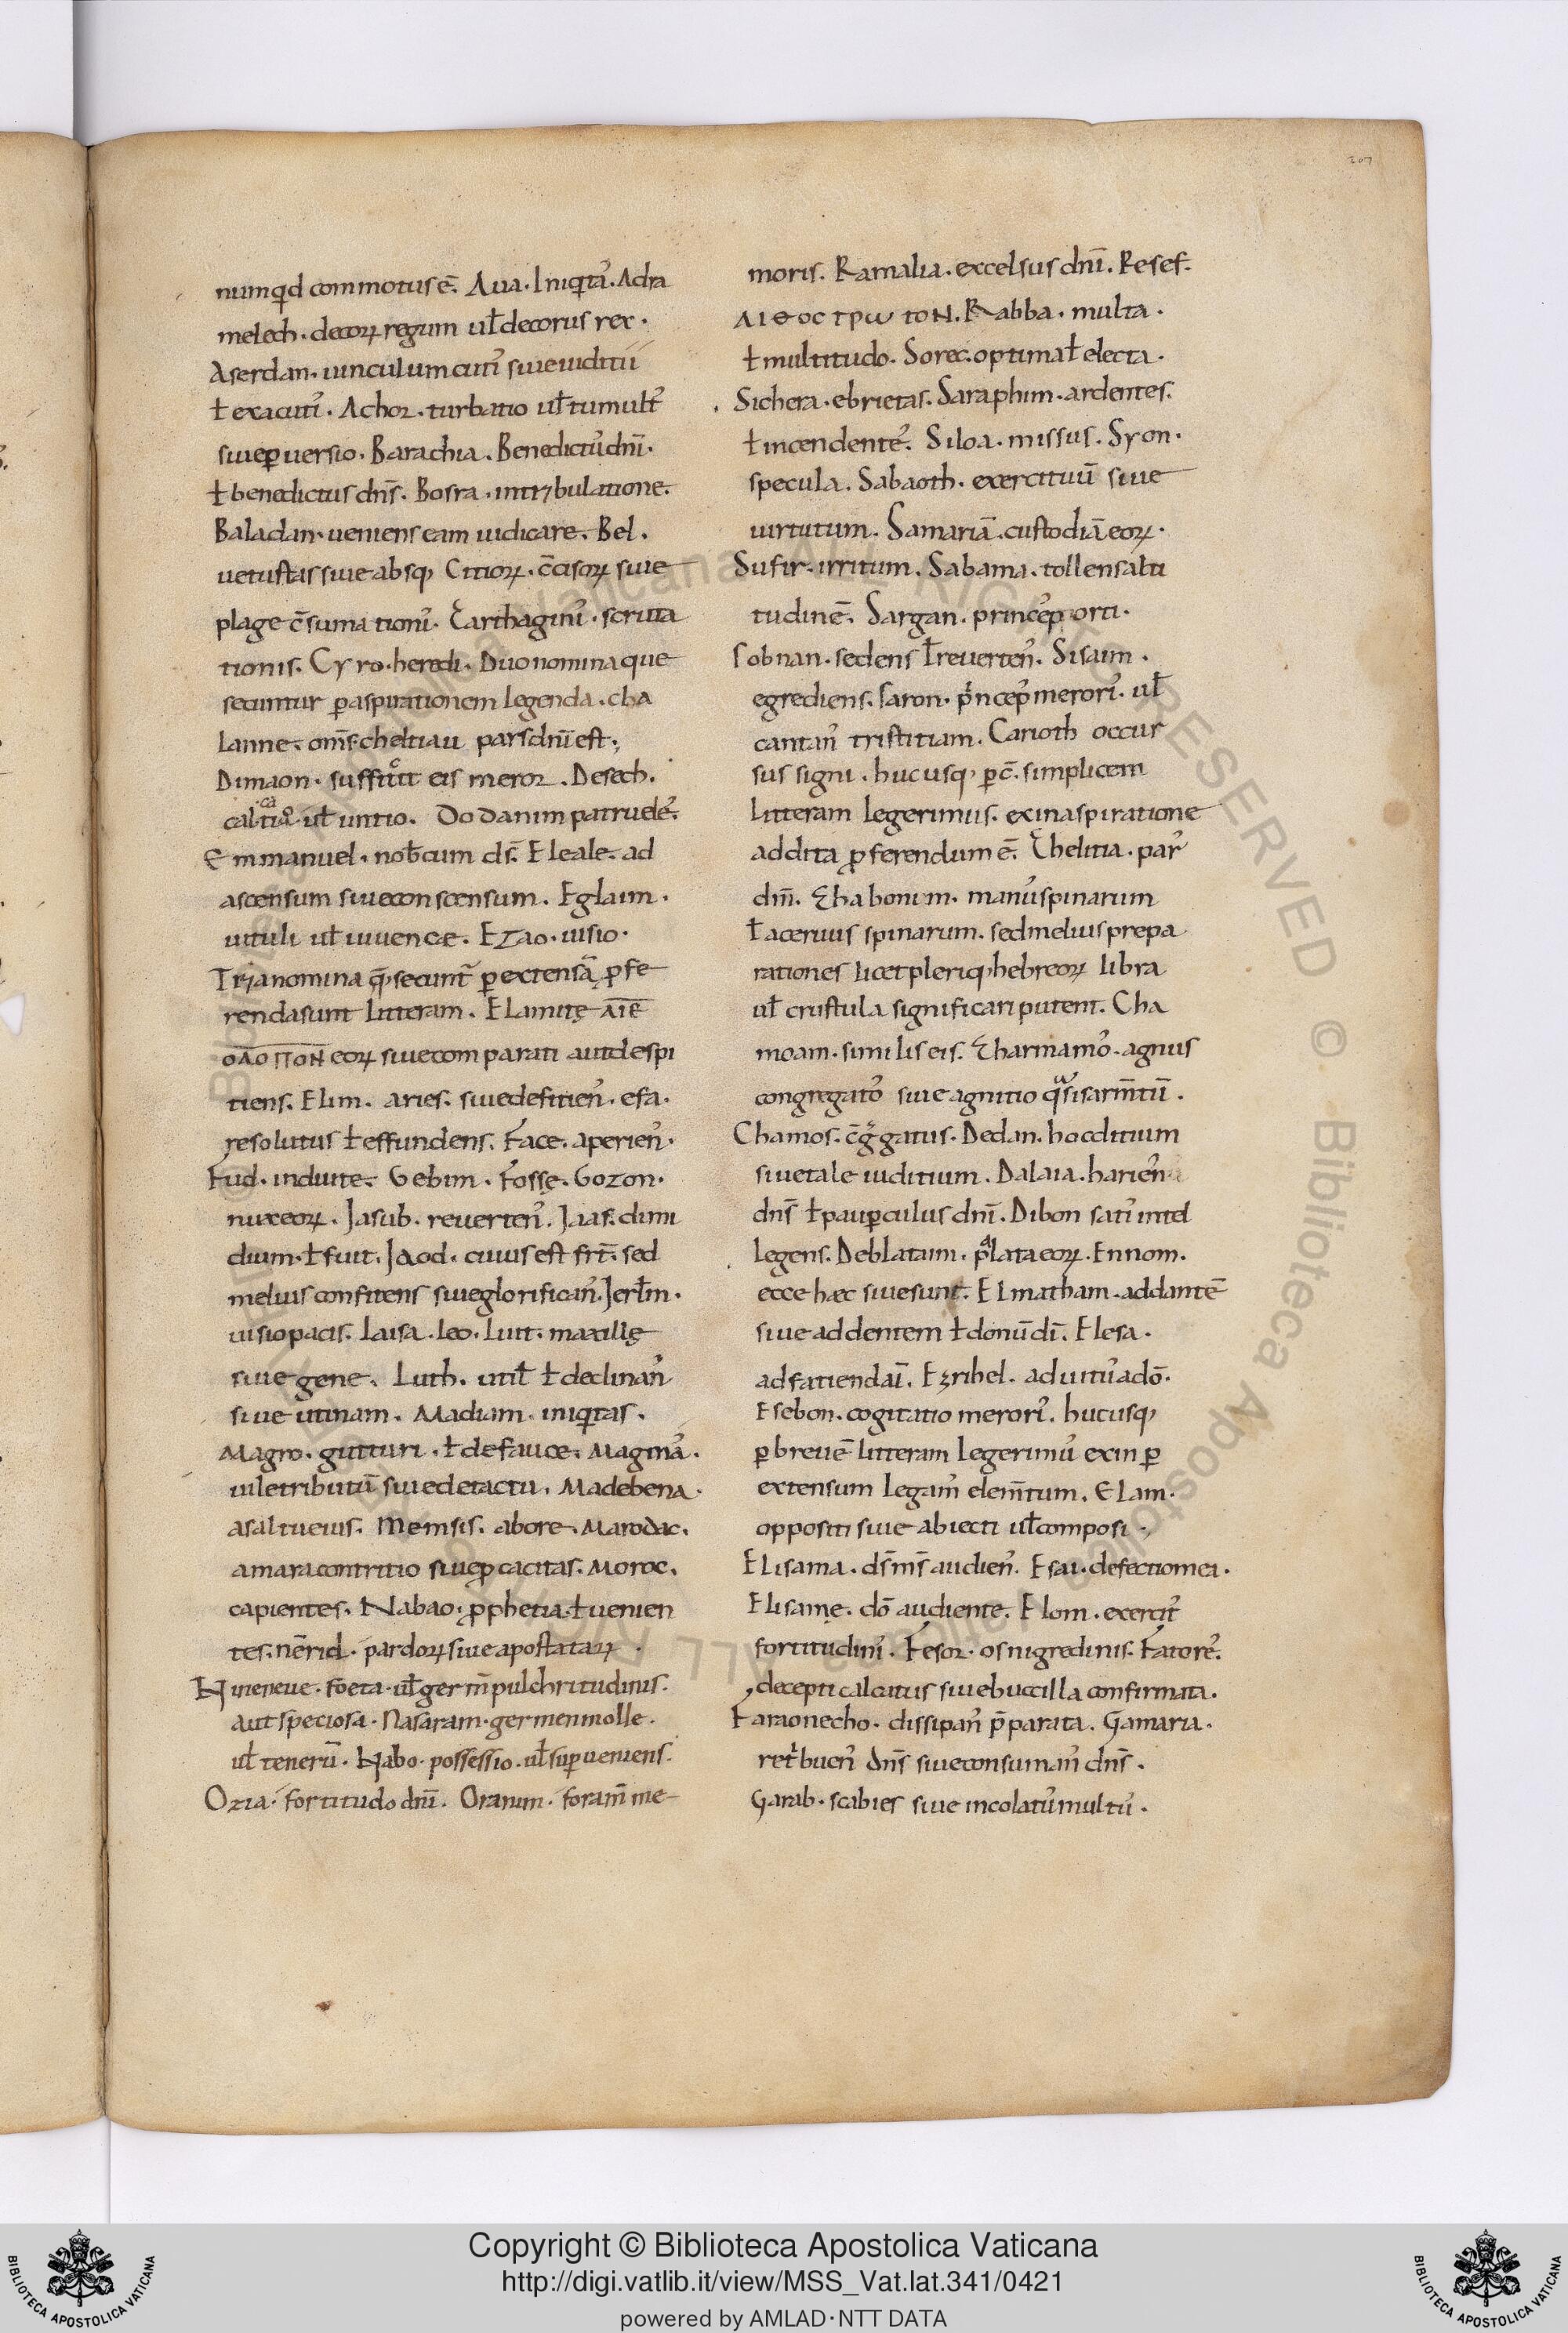 207
numqd commotus ē. Aua. Iniqtaʼ. Adra
melech. decoꝝ regum ul̄ decorus rex.
Aserdan. uinculum cutiʼ siue uiditii
ł exacutiʼ. Achor. turbatio ul̄ tumultʼ
siue ꝑuersio. Barachia. Benedictuʼ dnī.
ł benedictus dns̄. Bosra. intribulatione.
Baladan. ueniens eam iudicare. Bel.
uetustas siue absqʼ Citioꝝ. c̄cisoꝝ siue
plage c̄sumationiʼ. Carthaginiʼ. scruta
tionis. Cyro. heredi. Duo nomina que
secuntur ꝑ aspirationem legenda. cha
lanne. oms̄. cheltiau pars dnī est.,
Dimaon. suffitit eis meror. Desech.
ul̄ untio. Dodanim patrueleʼ.
Emmanuel. nob̄cum ds̄. Eleale. ad
ascensum siue conscensum. Eglaim.
uituli ul̄ iuuence. Ezao. uisio.
Tria nomina q̄ secunt̄ ꝑ extensā ꝓfe
renda sunt litteram. Elamitę ΛΙΕ
ΟΛΟΠΟΝ eoꝝ siue comparati aut despi
tiens. Elim. aries. siue defitienʼ. efa.
resolutus ł effundens. Face. aperienʼ.
Fud. induite. Gebim. Fossę. Gozon.
nux eoꝝ. Jasub. reuertenʼ. Jaas. dimi
dium. ł fuit. Jaod. cuius est frt̄. sed
melius confitens siue glorificanʼ. Jerlm̄.
uisio pacis. Laisa. leo. Luit. maxillę
siue gene. Luth. util̄ ł declinanʼ
siue utinam. Madiam. iniqtas.
Magro. gutturi. ł de fauce. Magmaʼ.
uile tributū siue de tactu. Madebena.
a saltu eius. Memsis. ab ore. Marodac.
amara contritio siue ꝓcacitas. Moroc.
capientes. Nabao. ꝓphetia. ł uenien
tes. nērid. pardoꝝ siue apostataꝝ.
Nineneue. foeta. ul̄ germ̄ pulchritudinis.
aut speciosa. Nasaram. germen molle.
ul̄ tenerū. Nabo. possessio. ul̄ suꝑueniens.
Ozia. fortitudo dnī. Oranim. foram̄ me-
moris. Ramalia. excelsus dnī. Resef.
ΛΙΘΟCΤΡΩΤΟΝ. Rabba. multa.
ł multitudo. Sorec. optima ł electa.
Sichera. ebrietas. Saraphim. ardentes.
ł incendenteʼ. Siloa. missus. Syon.
specula. Sabaoth. exercituū siue
uirtutum. Samariā. custodiā eoꝝ.
Sufir. irritum. Sabama. tollens alti
tudinē. Sargan. princepʼ orti.
Sobnan. sedens ł reuertenʼ. Sisaim.
egrediens. Saron. pʼncepʼ meroriʼ. ul̄
cantanʼ tristitiam. Carioth occur
sus signi. hucusqʼ ꝑ c̄. simplicem
litteram legerimus. exin aspiratione
addita ꝓferendum ē. Chelitia. parʼ
dnī. Chabonim. manuʼ spinarum
ł aceruus spinarum. sed melius prepa
rationes licet pleriqʼ hebreoꝝ libra
ul̄ crustula significari putent. Cha
moam. similis eis. Charmamoʼ. agnus
congregatoʼ siue agnitio qasi sarm̄tū.
Chamos. c̄ggatus. Dedan. hoc ditium
siue tale iuditium. Dalaia. harienʼ
dns̄ ł pauꝑculus dnī. Dibon satiʼ intel
legens. Deblataim. plata eoꝝ. Ennom.
ecce hæc siue sunt. Elmatham. addantē
siue addentem ł donū dī. Elesa.
ad fatiendaī. Ezrihel. adiutuʼ adō.
Esebon. cogitatio meroriʼ. hucusqʼ
ꝑ breuē litteram legerimuʼ exin ꝑ
extensum legamʼ elem̄tum. Elam.
oppositi siue abiecti ul̄ composi.,
Elisama. ds̄ ms̄ audienʼ. Esau. defectio mei.
Elisamę. dō audiente. Elom. exercitʼ
fortitudiniʼ. Fesor. os nigredinis. Fatoreʼ.
decepti calcatus siue buccilla confirmata.
Faraonecho. dissipanʼ p̄parata. Gamaria.
retʼbuenʼ dns̄ siue consumanʼ dns̄.
Garab. scabies siue incolatuʼ multuʼ.
Copyright © Biblioteca Apostolica Vaticana
http://digi.vatlib.it/view/MSS_Vat.lat.341/0421
powered by AMLAD·NTT DATA